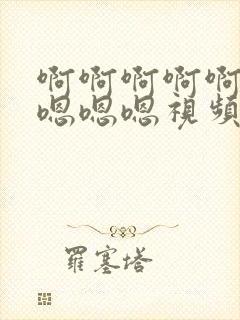 啊啊啊啊啊
嗯嗯嗯视頻
羅塞塔